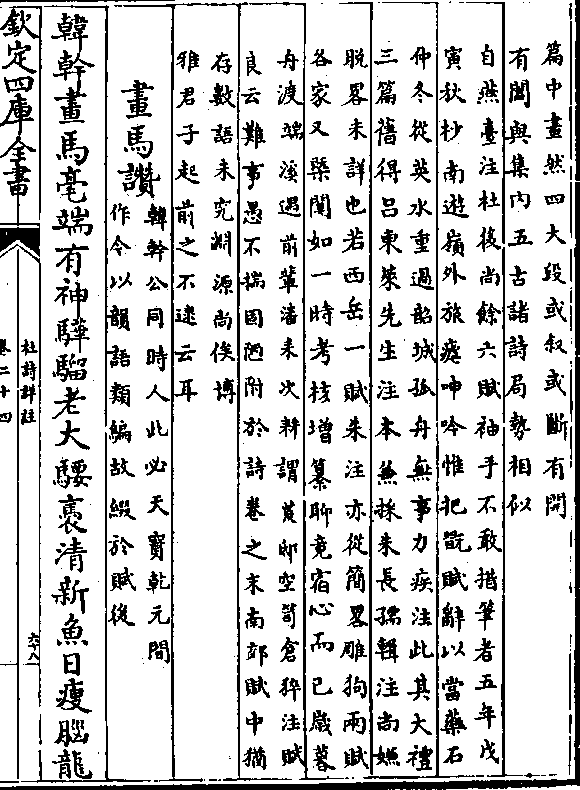 篇中畫然四大段或叙或斷有開
有闔與集内五古諸詩局勢相似
自燕臺注杜後尚餘六賦袖手不敢措筆者五年戊
寅秋杪南遊嶺外旅瘧呻吟惟把翫賦辭以當藥石
仲冬從英水重過韶城孤舟無事力疾注此其大禮
三篇舊得呂東萊先生注本兼採朱長孺輯注尚嫌
脱畧未詳也若西岳一賦朱注亦從簡畧雕狗兩賦
各家又槩闕如一時考核增纂聊竟宿心而已歲暮
舟渡端溪遇前輩潘未次耕謂莨邸空笥倉猝注賦
良云難事愚不揣固陋附於詩卷之末南郊賦中猶
存數語未究淵源尚俟博
雅君子起前之不逮云耳
畫馬讚
韓幹公同時人此必天寳乾元間
作今以韻語類編故綴於賦後
韓幹畫馬毫端有神驊騮老大騕褭清新魚目瘦腦龍
欽定四庫全書
杜詩詳註
卷二十四
六十八